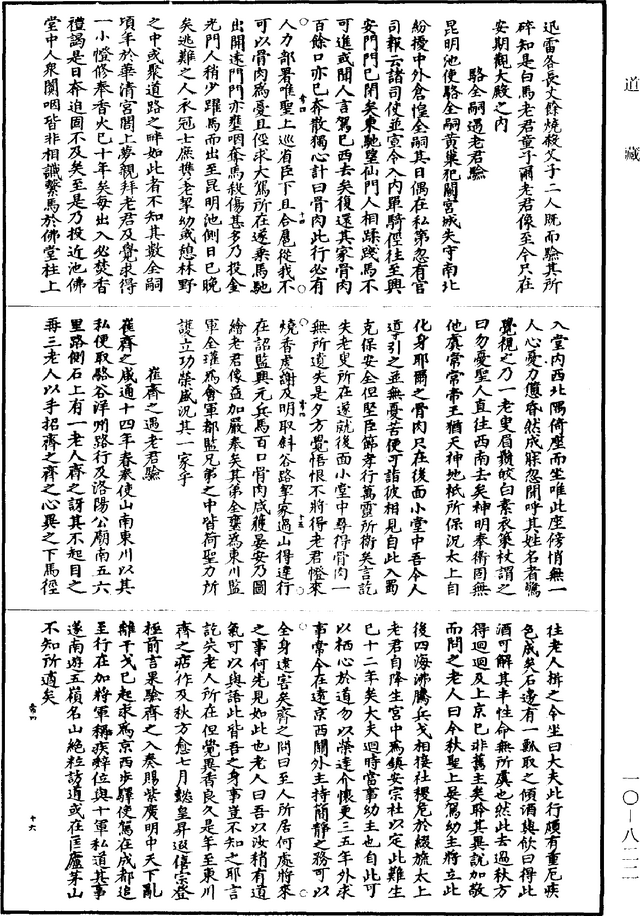 道藏
迅雷各長丈餘燒殺父子二人既而驗其所
碎知是白馬老君童子爾老君像至今只在
安期觀大殿之內
駱全嗣遇老君驗
昆明池使駱全嗣黃巢犯闕宮城失守南北
紛擾中外倉惶全嗣其日偶在私第忽有官
司報云諸司使並宣令入內單騎徑往至興
安門門已閉矣東馳望仙門人相蹂踐馬不
可進或聞人言駕已西去矣復還其家骨肉
百餘口亦已奔散獨心計曰骨肉此行必有
人力部署唯聖上巡省臣下且合扈從我不
可以骨肉為憂且徑求大駕所在遂乘馬馳
出開遠門門亦壅咽奪馬殺傷甚多乃投金
光門人稍少躍馬而出至昆明池側日已晚
矣逃難之人衣冠士庶攜老挈幼或憩林野
之中或聚道路之畔如此者不知其數全嗣
頃年於華清宮閣上夢親拜老君及覺求得
一小幀修奉香火已十年矣每出入必焚香
禮謁是日奔迫固不及矣至是乃投近池佛
堂中人眾闐咽皆非相識繫馬於佛堂柱上
入堂內西北隅倚座而坐唯此座傍悄無一
人心憂力憊昏然成寐忽聞呼其姓名者驚
覺視之乃一老叟眉鬚皎白素衣策杖謂之
曰勿憂聖人直往西南去矣神明奉衛固無
他虞常常帝王猶天神地祇所保況太上自
化身耶爾之骨肉只在後面小堂中吾令人
道引之並無憂苦便可詣彼相見自此入蜀
克保安全但堅臣節孝行萬靈所衛矣言訖
失老叟所在遂就後面小堂中尋得骨肉一
無所遺失是夕方覺悟恨不將得老君幀來
燒香虔謝及明取斜谷路挈家過山得達行
在詔監興元兵馬百口骨肉咸獲晏安乃圖
繪老君像益加嚴奉矣其弟全瓘為東川監
軍全瓘為會軍都監兄弟之中皆荷聖力所
護立功榮盛況其一家乎
崔齊之遇老君驗
崔齊之咸通十四年春奉使山南東川以其
私便取駱谷洋州路行及洛陽公廟南五六
里路側石上有一老人齊之訝其不起目之
再三老人以手招齊之齊之心異之下馬徑
往老人揖之令坐曰大夫此行頗有重厄疾
色成矣石邊有一瓢取之傾酒與飲曰得此
酒可解其半性命無所虞也然此去過秋方
得迴迴及上京已非舊主矣聆其異說加敬
而問之老人曰今秋聖上晏駕幼主將立此
後四海沸騰兵戈相接社稷危於綴旒太上
老君自降生宮中為鎮安宗社以定此難生
已十二年矣大夫迴時當事幼主也自此可
以栖心於道勿以榮達介懷更三五年外求
事常令在遠京西關外主持簡靜之務可以
全身遠害矣齊之問曰至人所居何處將來
之事何先見如此也老人曰吾以汝稍有道
氣可以與語此皆吾之身事豈不知之耶言
訖失老人所在但覺異香良久是年至東川
齊之痁作及秋方愈七月懿皇昇遐僖宗登
極前言果驗齊之入奏賜紫廣明中天下亂
離干戈已起求為京西步驛使駕在成都追
至行在加將軍稱疾辭位與十軍私道其事
遂南遊五嶺名山絕粒訪道或在匡廬茅山
不知所適矣
卷四
十四
卷四
十五
卷四
十六
一〇—八二二